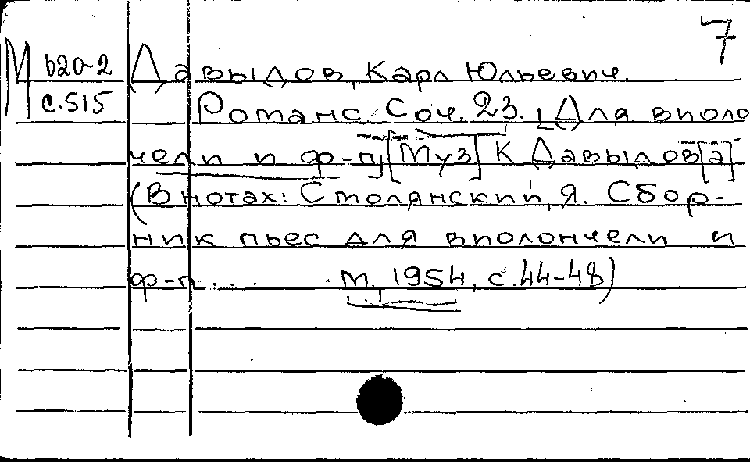 7
М 620-2 Давыдов, Карл Юльевич.
с.515 Романс. Соч. 23. [Для виоло
нчели и ф-п] [Муз] К Давыдов[а]
(В нотах: Столянский, Я. Сбор-
ник пьес для виолончели и
ф-п.... М. 1954, с.44-48)